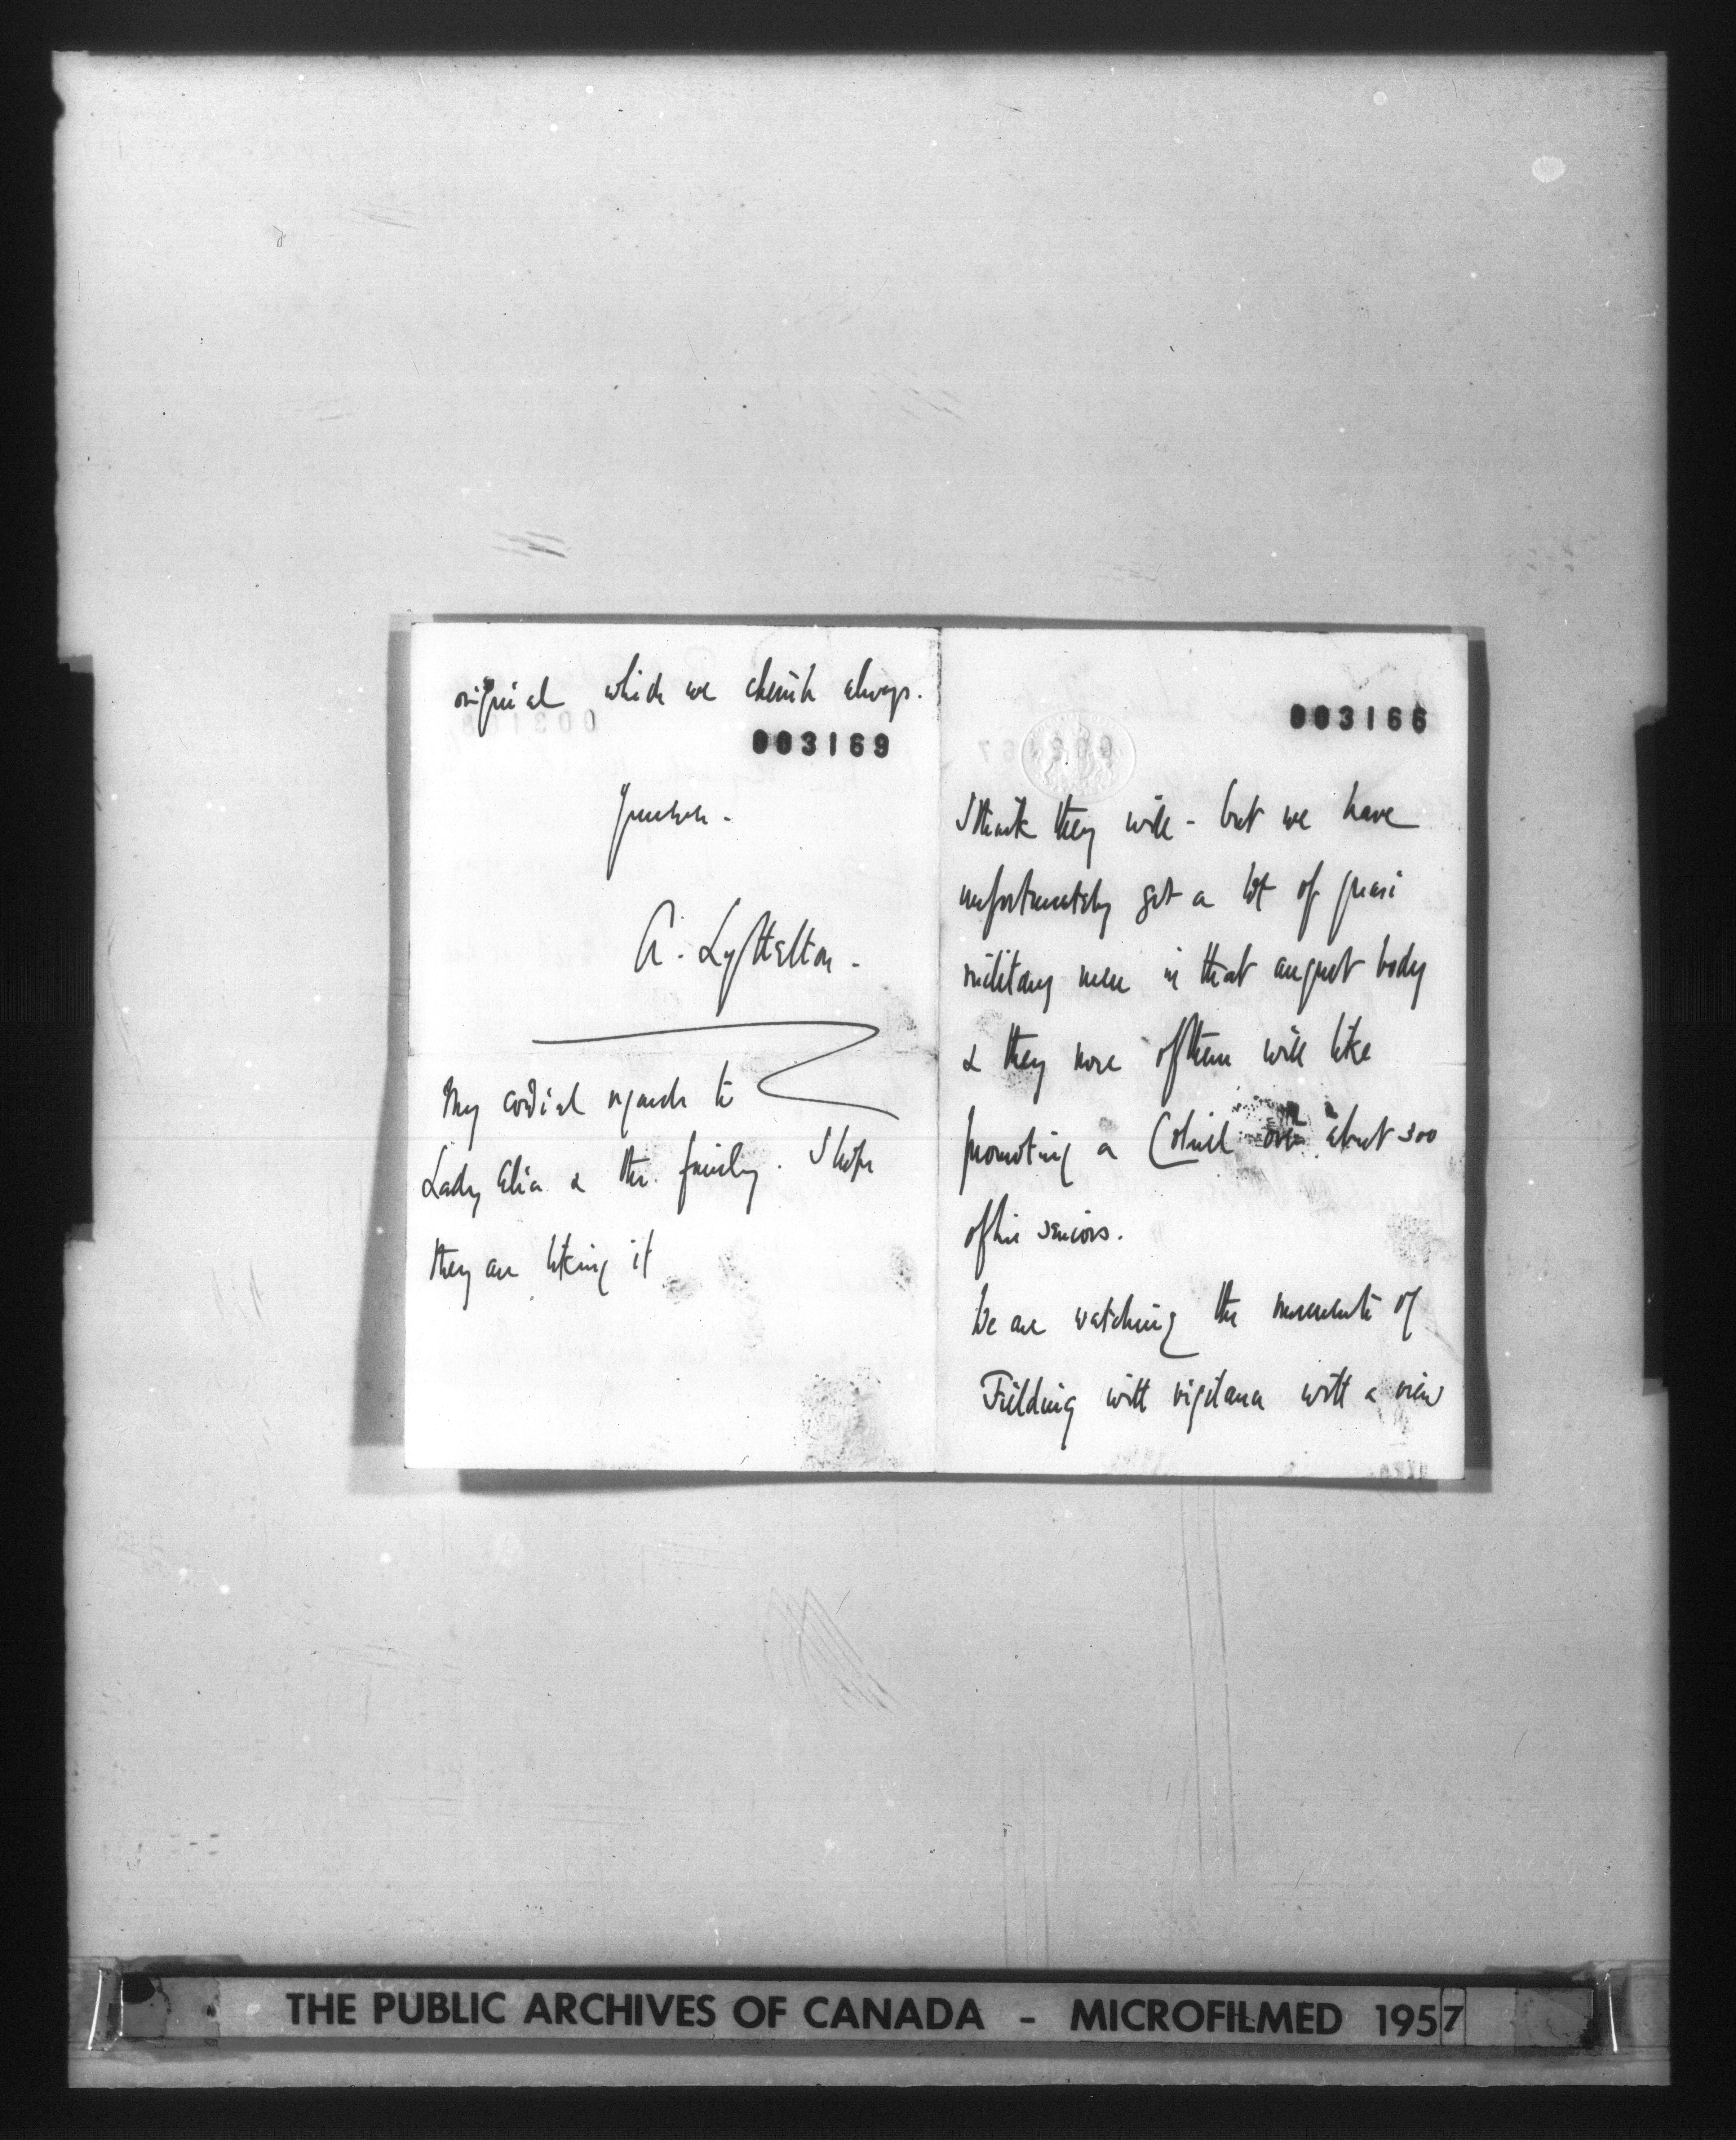 original which we cherish always.
003169
Yours ever -
A. Lyttelton -
My cordial regards to
Lady Elia & the family. I hope
they are liking it
003166
I think they will - but we have
unfortunately got a lot of quasi
military men in that august body
& they none of them will like
promoting a Colonel over about 300
of his seniors.
We are watching the movements of
Fielding with vigilance with a view
THE PUBLIC ARCHIVES OF CANADA - MICROFILMED 1957